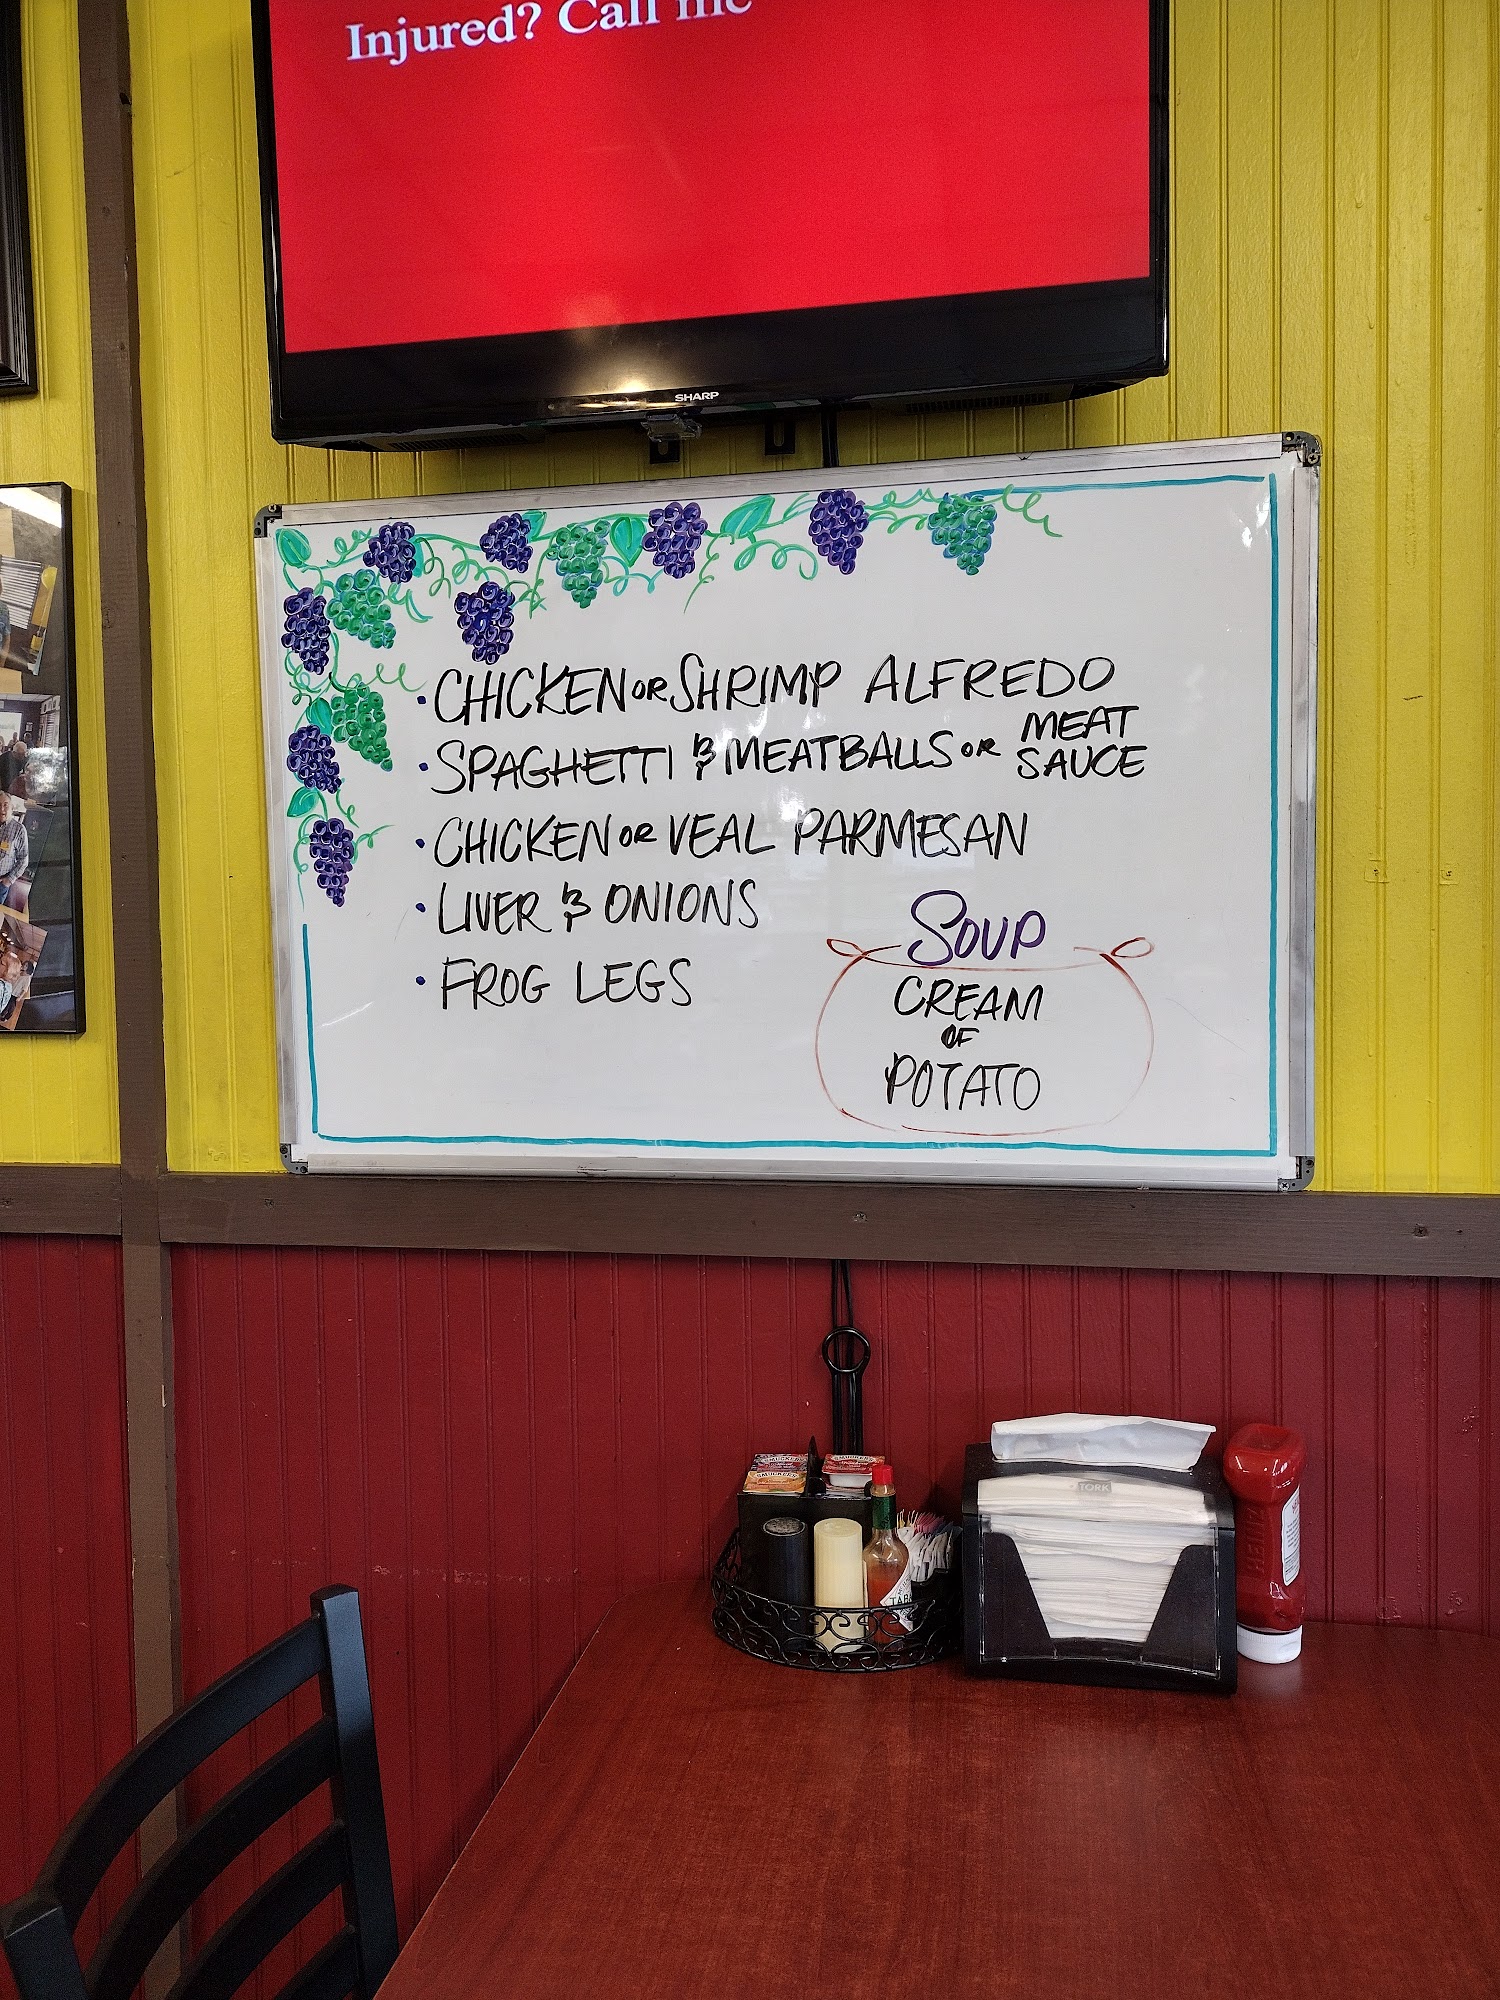 Injured? Call me
SHARP
• CHICKEN OR SHRIMP ALFREDO
• SPAGHETTI & MEATBALLS OR MEAT SAUCE
• CHICKEN OR VEAL PARMESAN
• LIVER & ONIONS
• FROG LEGS
SOUP
CREAM
OF
POTATO
SMUCKER'S
TORK
HEINZ